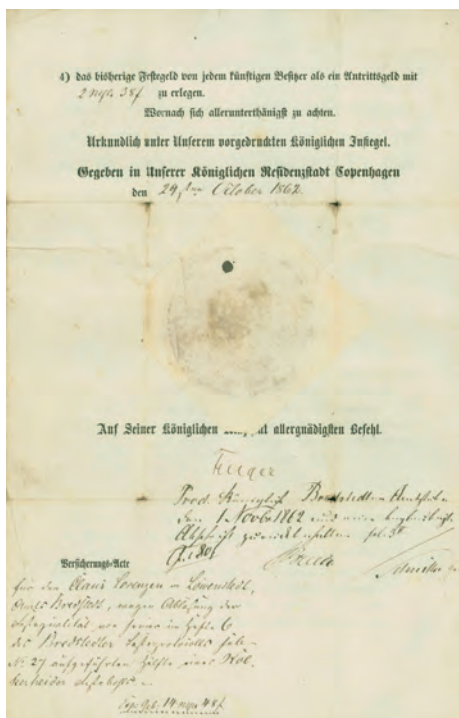 4) das bisherige Festegeld von jedem künftigen Besitzer als ein Antrittsgeld mit
zu erlegen.
Wornach sich allerunterthänigst zu achten.
Urkundlich unter Unserem vorgedruckten Königlichen Insiegel.
Gegeben in Unserer Königlichen Residenzstadt Copenhagen
den 29sten October 1862.
Auf Seiner Königlichen allergnädigsten Befehl.
Prod. Königlich Bredstedter Amtstube
den 1 Novbr 1862 und eine beglaubigte
Abschrift zurückbehalten
Versicherungs-Acte
für den Claus Lorenzen in Löwenstedt,
Amts Bredstedt, wegen Ablösung der
Festequalität von seiner im Hefte 6
des Bredstedter Festeprotocolls sub
No. 27 aufgeführten Hälfte einer